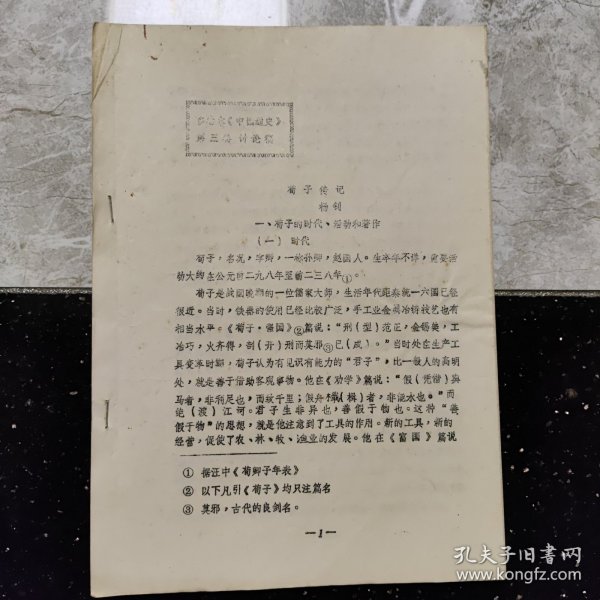 《中国通史》
第三卷 讨论稿
荀子传记
杨钊
一、荀子的时代、活动和著作
（一）时代
荀子，名况，字卿，一称孙卿，赵国人。生卒年不详，重要活
动大约在公元前二九八年至前二三八年①。
荀子是战国晚期的一位儒家大师，生活年代距秦统一六国已经
很近。当时，铁器的使用已经比较广泛，手工业金属冶铸技艺也有
相当水平。《荀子·强国》②篇说："刑（型）范正，金锡美，工
冶巧，火齐得，剖（开）刑而莫邪③已（成）。"当时处在生产工
具变革时期，荀子认为有见识有能力的"君子"，比一般人的高明
处，就是善于借助客观事物。他在《劝学》篇说："假（凭借）舆
马者，非利足也，而致千里；假舟楫（楫）者，非能水也。"而
绝（渡）江河。君子生非异也，善假于物也。这种"善
假于物"的思想，就是他注意到了工具的作用。新的工具，新的
经营，促使了农、林、牧、渔业的发展。他在《富国》篇说
① 据汪中《荀卿子年表》
② 以下凡引《荀子》均只注篇名
③ 莫邪，古代的良剑名。
—1—
孔夫子旧书网
www.kongfz.com